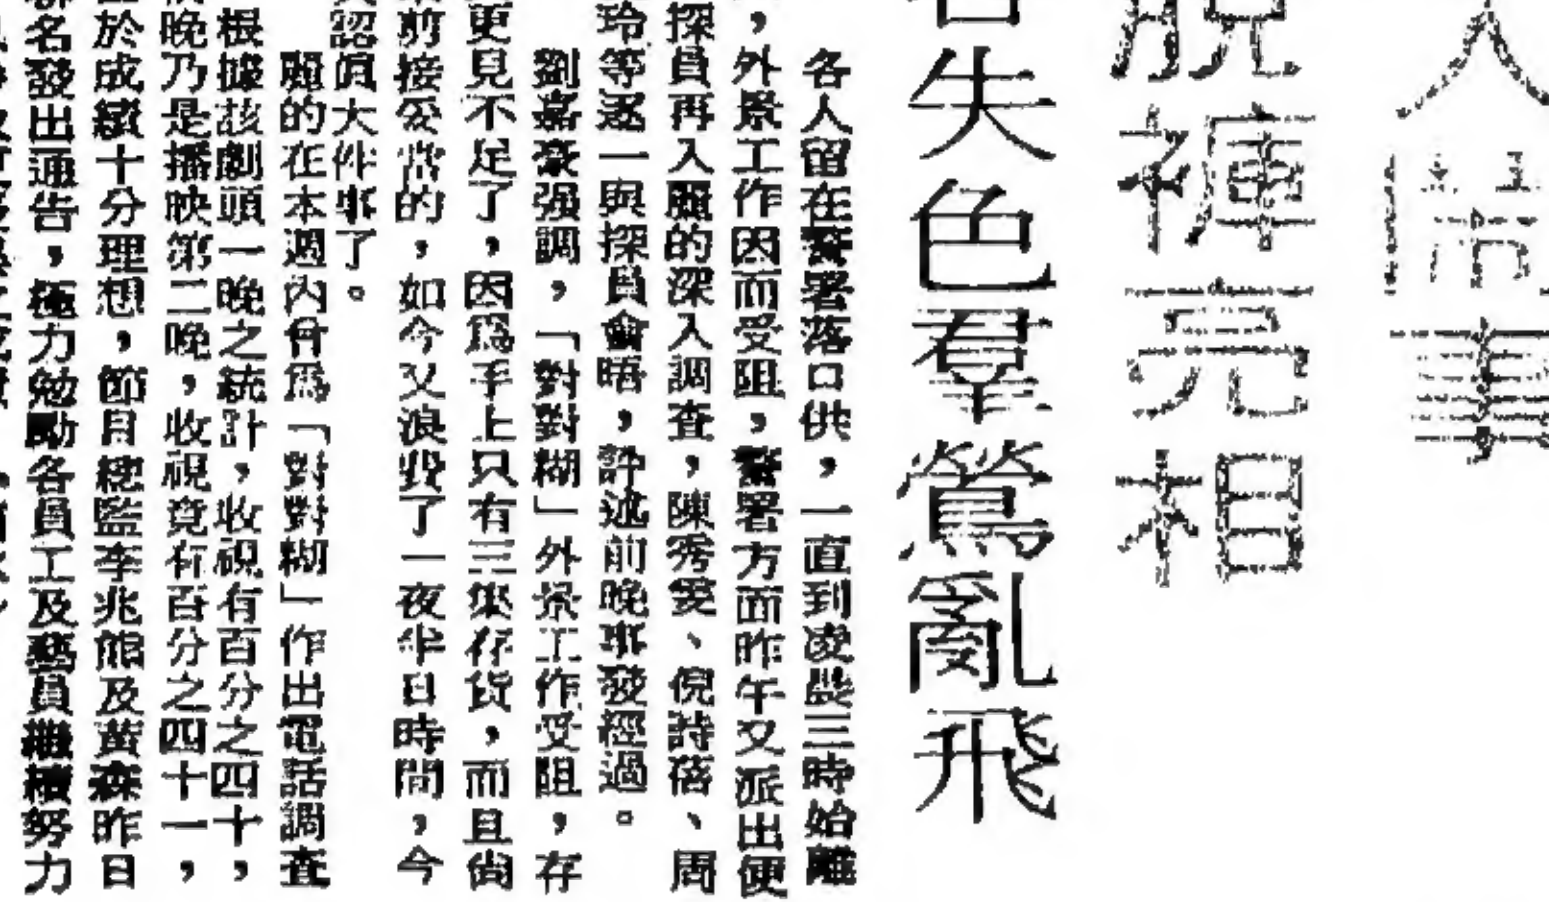 人鬧事
脫褲亮相
名失色羣鶯亂飛
各人留在警署落口供，一直到凌晨三時始離
，外景工作因而受阻，警署方面昨午又派出便
探員再入麗的深入調查，陳秀雯、倪詩蓓、周
玲等逐一與探員會晤，詳述前晚事發經過。
劉嘉豪强調，「對對糊」外景工作受阻，存
更見不足了，因爲手上只有三集存貨，而且尙
前接受常的，如今又浪費了一夜半日時間，今
認眞大件事了。
麗的在本週內曾爲「對對糊」作出電話調查
根據該劇頭一晚之統計，收視有百分之四十，
晚乃是播映第二晚，收視竟有百分之四十一，
於成績十分理想，節目總監李兆熊及黃森昨日
名發出通告，極力勉勵各員工及藝員繼續努力